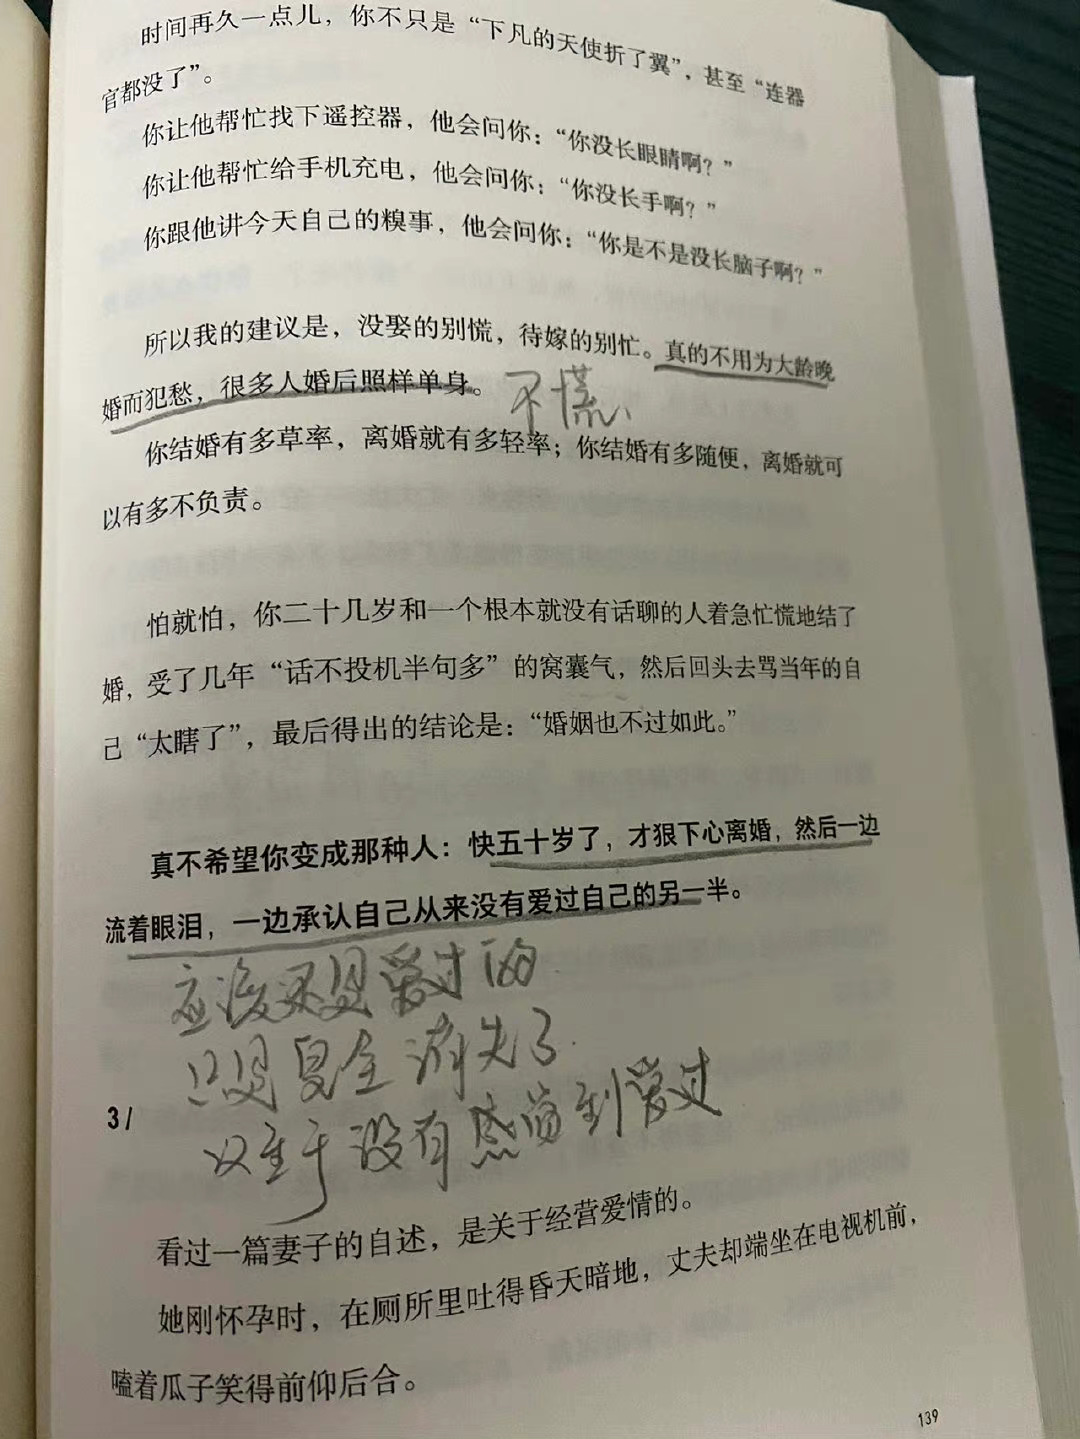 时间再久一点儿，你不只是“下凡的天使折了翼”，甚至“连器
官都没了”。
你让他帮忙找下遥控器，他会问你：“你没长眼睛啊？”
你让他帮忙给手机充电，他会问你：“你没长手啊？”
你跟他讲今天自己的糗事，他会问你：“你是不是没长脑子啊？”
所以我的建议是，没娶的别慌，待嫁的别忙。真的不用为大龄晚
婚而犯愁，很多人婚后照样单身。
不慌、
你结婚有多草率，离婚就有多轻率；你结婚有多随便，离婚就可
以有多不负责。
怕就怕，你二十几岁和一个根本就没有话聊的人着急忙慌地结了
婚，受了几年“话不投机半句多”的窝囊气，然后回头去骂当年的自
己“太瞎了”，最后得出的结论是：“婚姻也不过如此。”
真不希望你变成那种人：快五十岁了，才狠下心离婚，然后一边
流着眼泪，一边承认自己从来没有爱过自己的另一半。
应该还是爱过的
只是 全消失了
以至于没有感觉到爱过
3 /
看过一篇妻子的自述，是关于经营爱情的。
她刚怀孕时，在厕所里吐得昏天暗地，丈夫却端坐在电视机前，
嗑着瓜子笑得前仰后合。
139